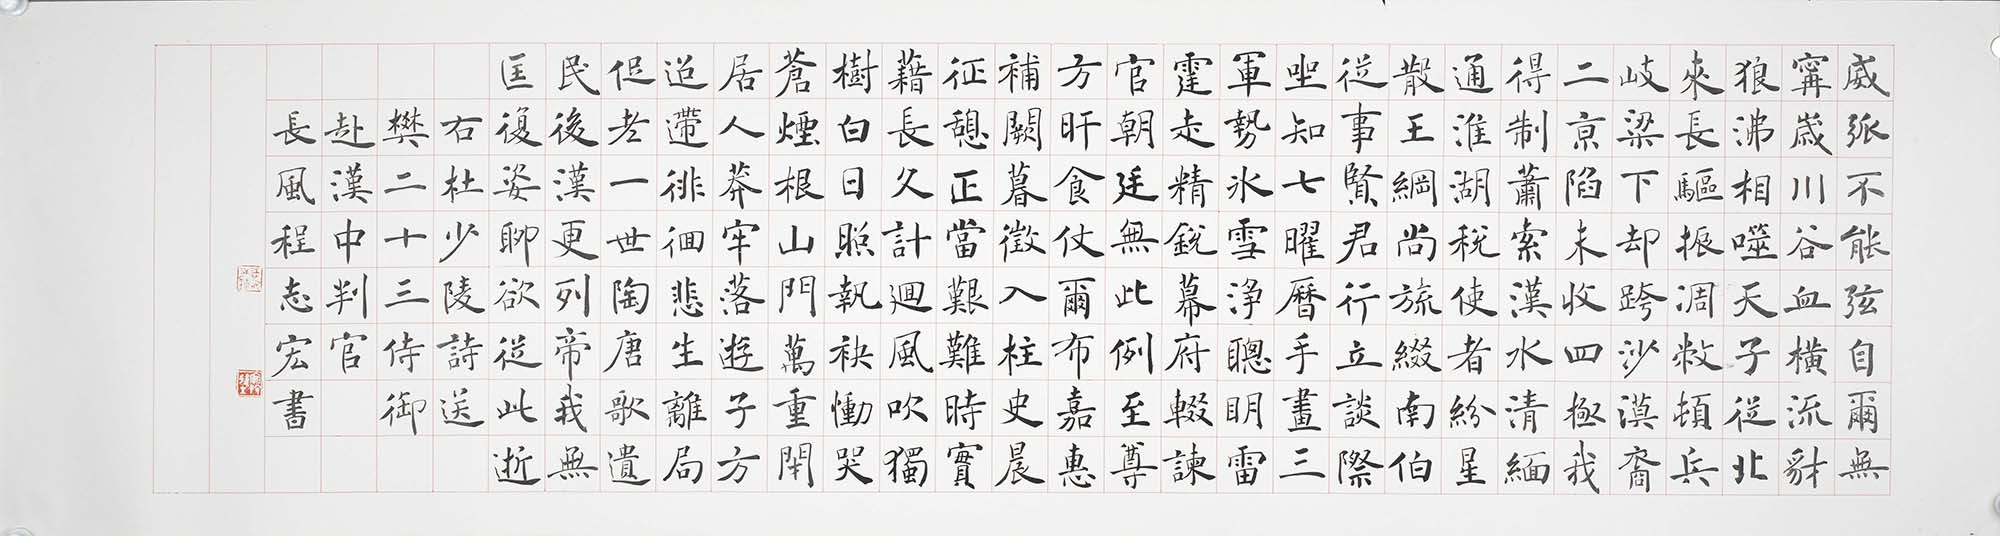 威弧不能弦自爾無
寧歲川谷血橫流豺
狼沸相噬天子從北
來長驅振凋敝頓兵
岐梁下却跨沙漠裔
二京陷未收四極我
得制蕭索漢水清緬
通淮湖稅使者紛星
散王綱尚旒綴南伯
從事賢君行立談際
坐知七曜曆手畫三
軍勢冰雪淨聰明雷
霆走精銳幕府輟諫
官朝廷無此例至尊
方旰食仗爾布嘉惠
補闕暮徵入柱史晨
征憩正當艱難時實
藉長久計迴風吹獨
樹白日照執袂慟哭
蒼煙根山門萬重閉
居人莽牢落遊子方
迢遰徘徊悲生離局
促老一世陶唐歌遺
民後漢更列帝我無
匡復姿聊欲從此逝
右杜少陵詩送
樊二十三侍御
赴漢中判官
長風程志宏書